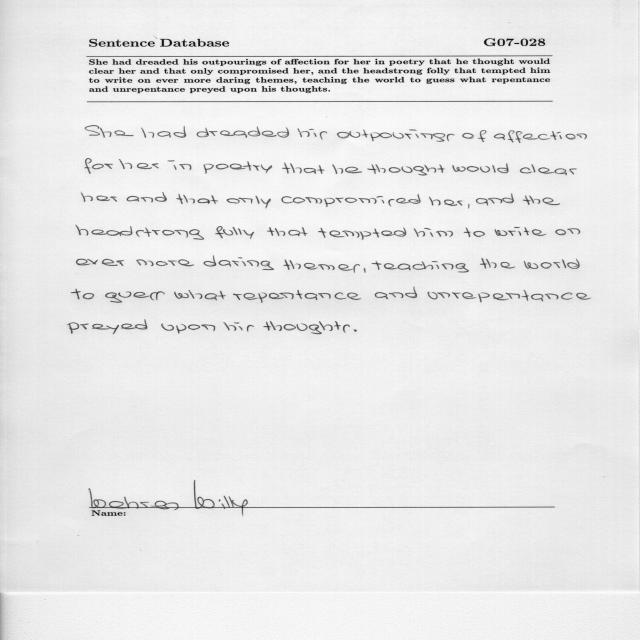 Sentence Database G07-028
She had dreaded his outpourings of affection for her in poetry that he thought would
clear her and that only compromised her, and the headstrong folly that tempted him
to write on ever more daring themes, teaching the world to guess what repentance
and unrepentance preyed upon his thoughts.
She had dreaded his outpourings of affection
for her in poetry that he thought would clear
her and that only compromised her, and the
headstrong fully that tempted him to write on
ever more daring themes, teaching the world
to guess what repentance and unrepentance
preyed upon his thoughts.
Name: